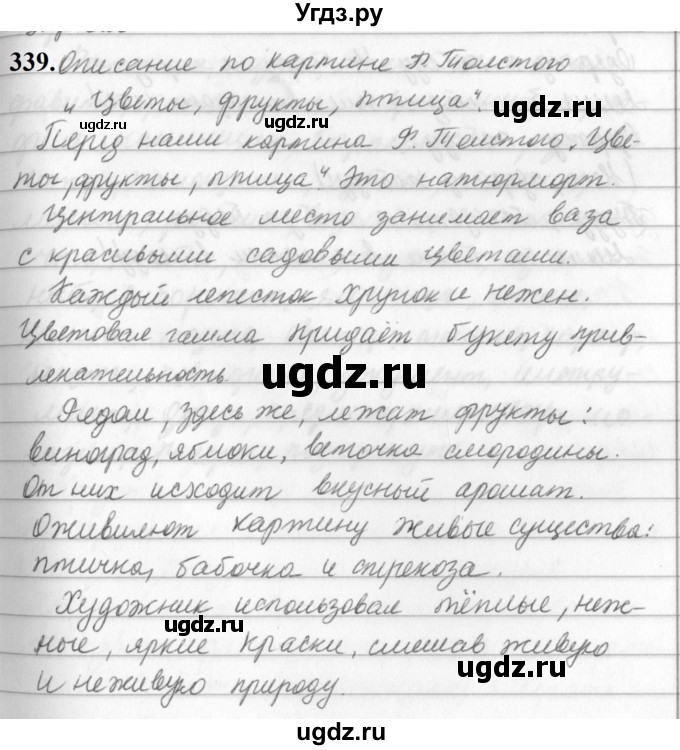 Угдз.ру
339. Описание по картине Ф. Толстого
„Цветы, фрукты, птица".
ugdz.ru ugdz.ru
Перед нами картина Ф. Толстого „Цве-
ты, фрукты, птица". Это натюрморт.
Центральное место занимает ваза
с красивыми садовыми цветами.
Каждый лепесток хрупок и нежен.
Цветовая гамма придаёт букету прив-
лекательность.
ugdz.ru
Рядом, здесь же, лежат фрукты:
виноград, яблоки, веточка смородины.
От них исходит вкусный аромат.
Оживляют картину живые существа:
птичка, бабочка и стрекоза.
ugdz.ru
Художник использовал тёплые, неж-
ugdz.ru
ные, яркие краски, смешав живую
ugdz.ru
и неживую природу.
Угдз.ру